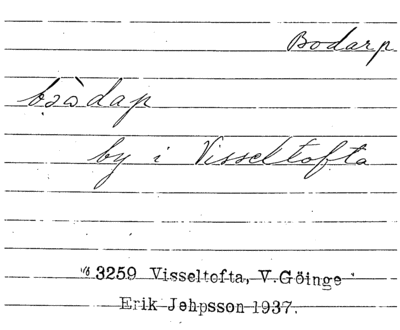 Bodarp
bɔ̀dap
by i Visseltofta
3259 Visseltofta, V.Göinge
Erik Jehpsson 1937.